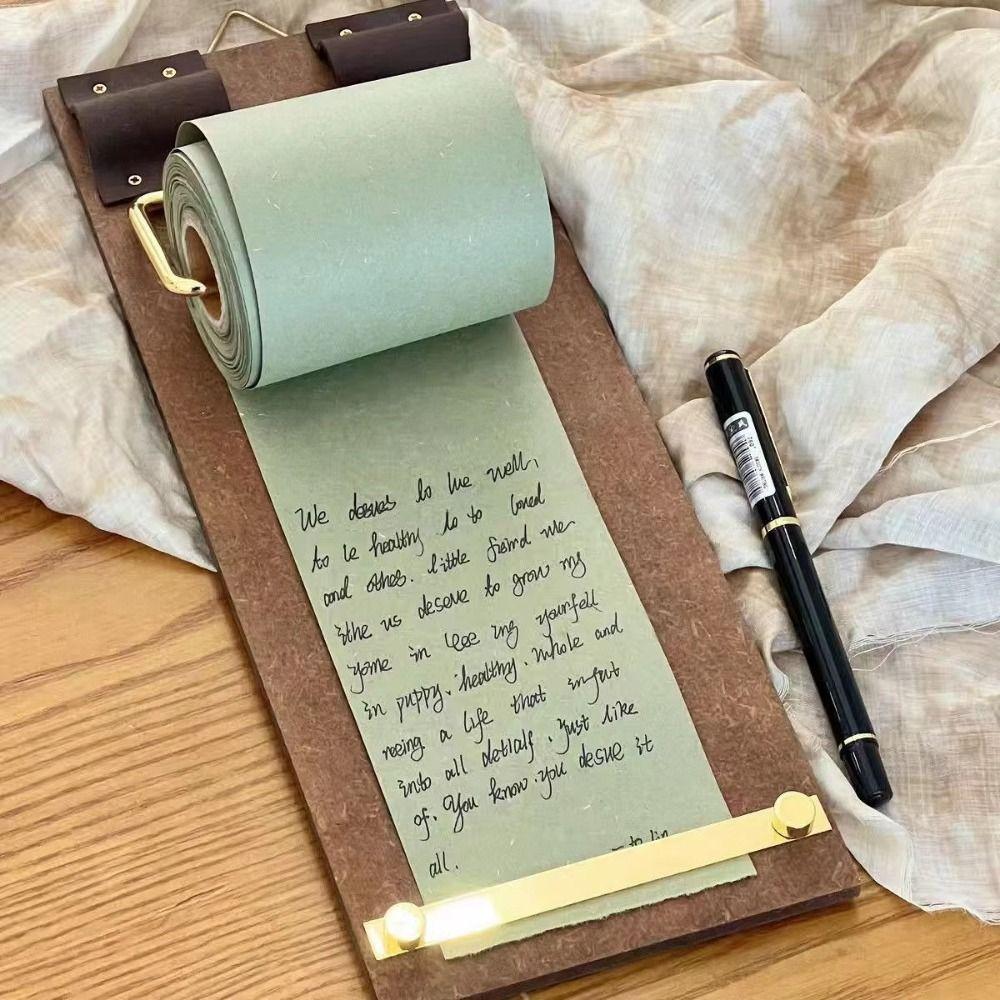 We deserves to live well,
to be healthy to to loved
and othes. little friend we
ithe us desove to grow my
yome in lee ing yourfell
in puppy. healthy. whole and
reeing a life that infout
into all detlalf. just like
of. You know. you desue it
all.